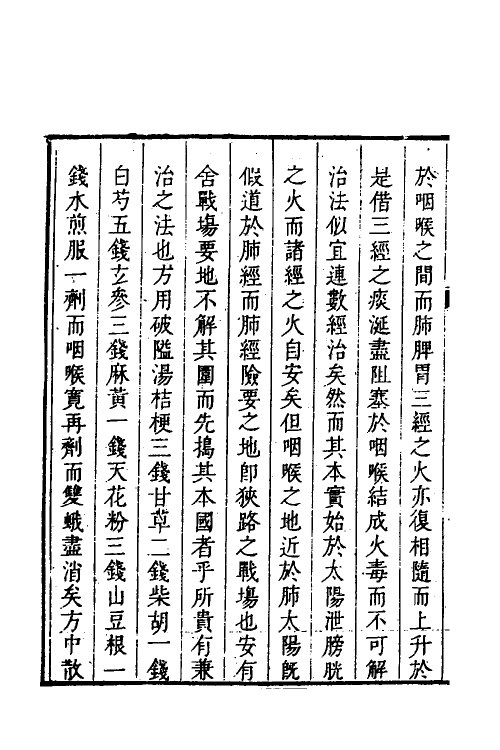 於咽喉之間而肺脾胃三經之火亦復相隨而上升於
是借三經之痰涎盡阻塞於咽喉結成火毒而不可解
治法似宜連數經治矣然而其本實始於太陽泄膀胱
之火而諸經之火自安矣但咽喉之地近於肺太陽既
假道於肺經而肺經險要之地卽狹路之戰塲也安有
舍戰塲要地不解其圍而先搗其本國者乎所貴有兼
治之法也方用破隘湯桔梗三錢甘草二錢柴胡一錢
白芍五錢玄參三錢麻黃一錢天花粉三錢山豆根一
錢水煎服一劑而咽喉寛再劑而雙蛾盡消矣方中散